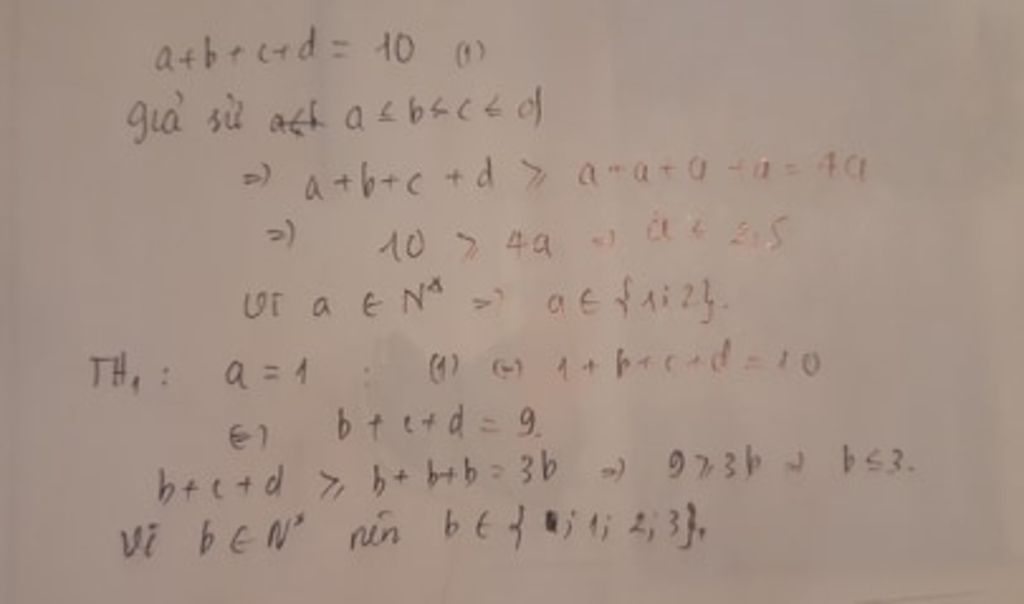 a+b+c+d = 10 (1)
giả sử a≤b a ≤ b ≤ c ≤ d
=> a+b+c+d ⩾ a+a+a+a = 4a
=> 10 ⩾ 4a => a ≤ 2,5
Vì a ∈ N* => a ∈ {1;2}.
TH₁ : a = 1 : (1) <=> 1+b+c+d = 10
<=> b+c+d = 9.
b+c+d ⩾ b+b+b = 3b => 9⩾3b => b≤3.
Vì b ∈ N* nên b ∈ { ; 1; 2; 3}.